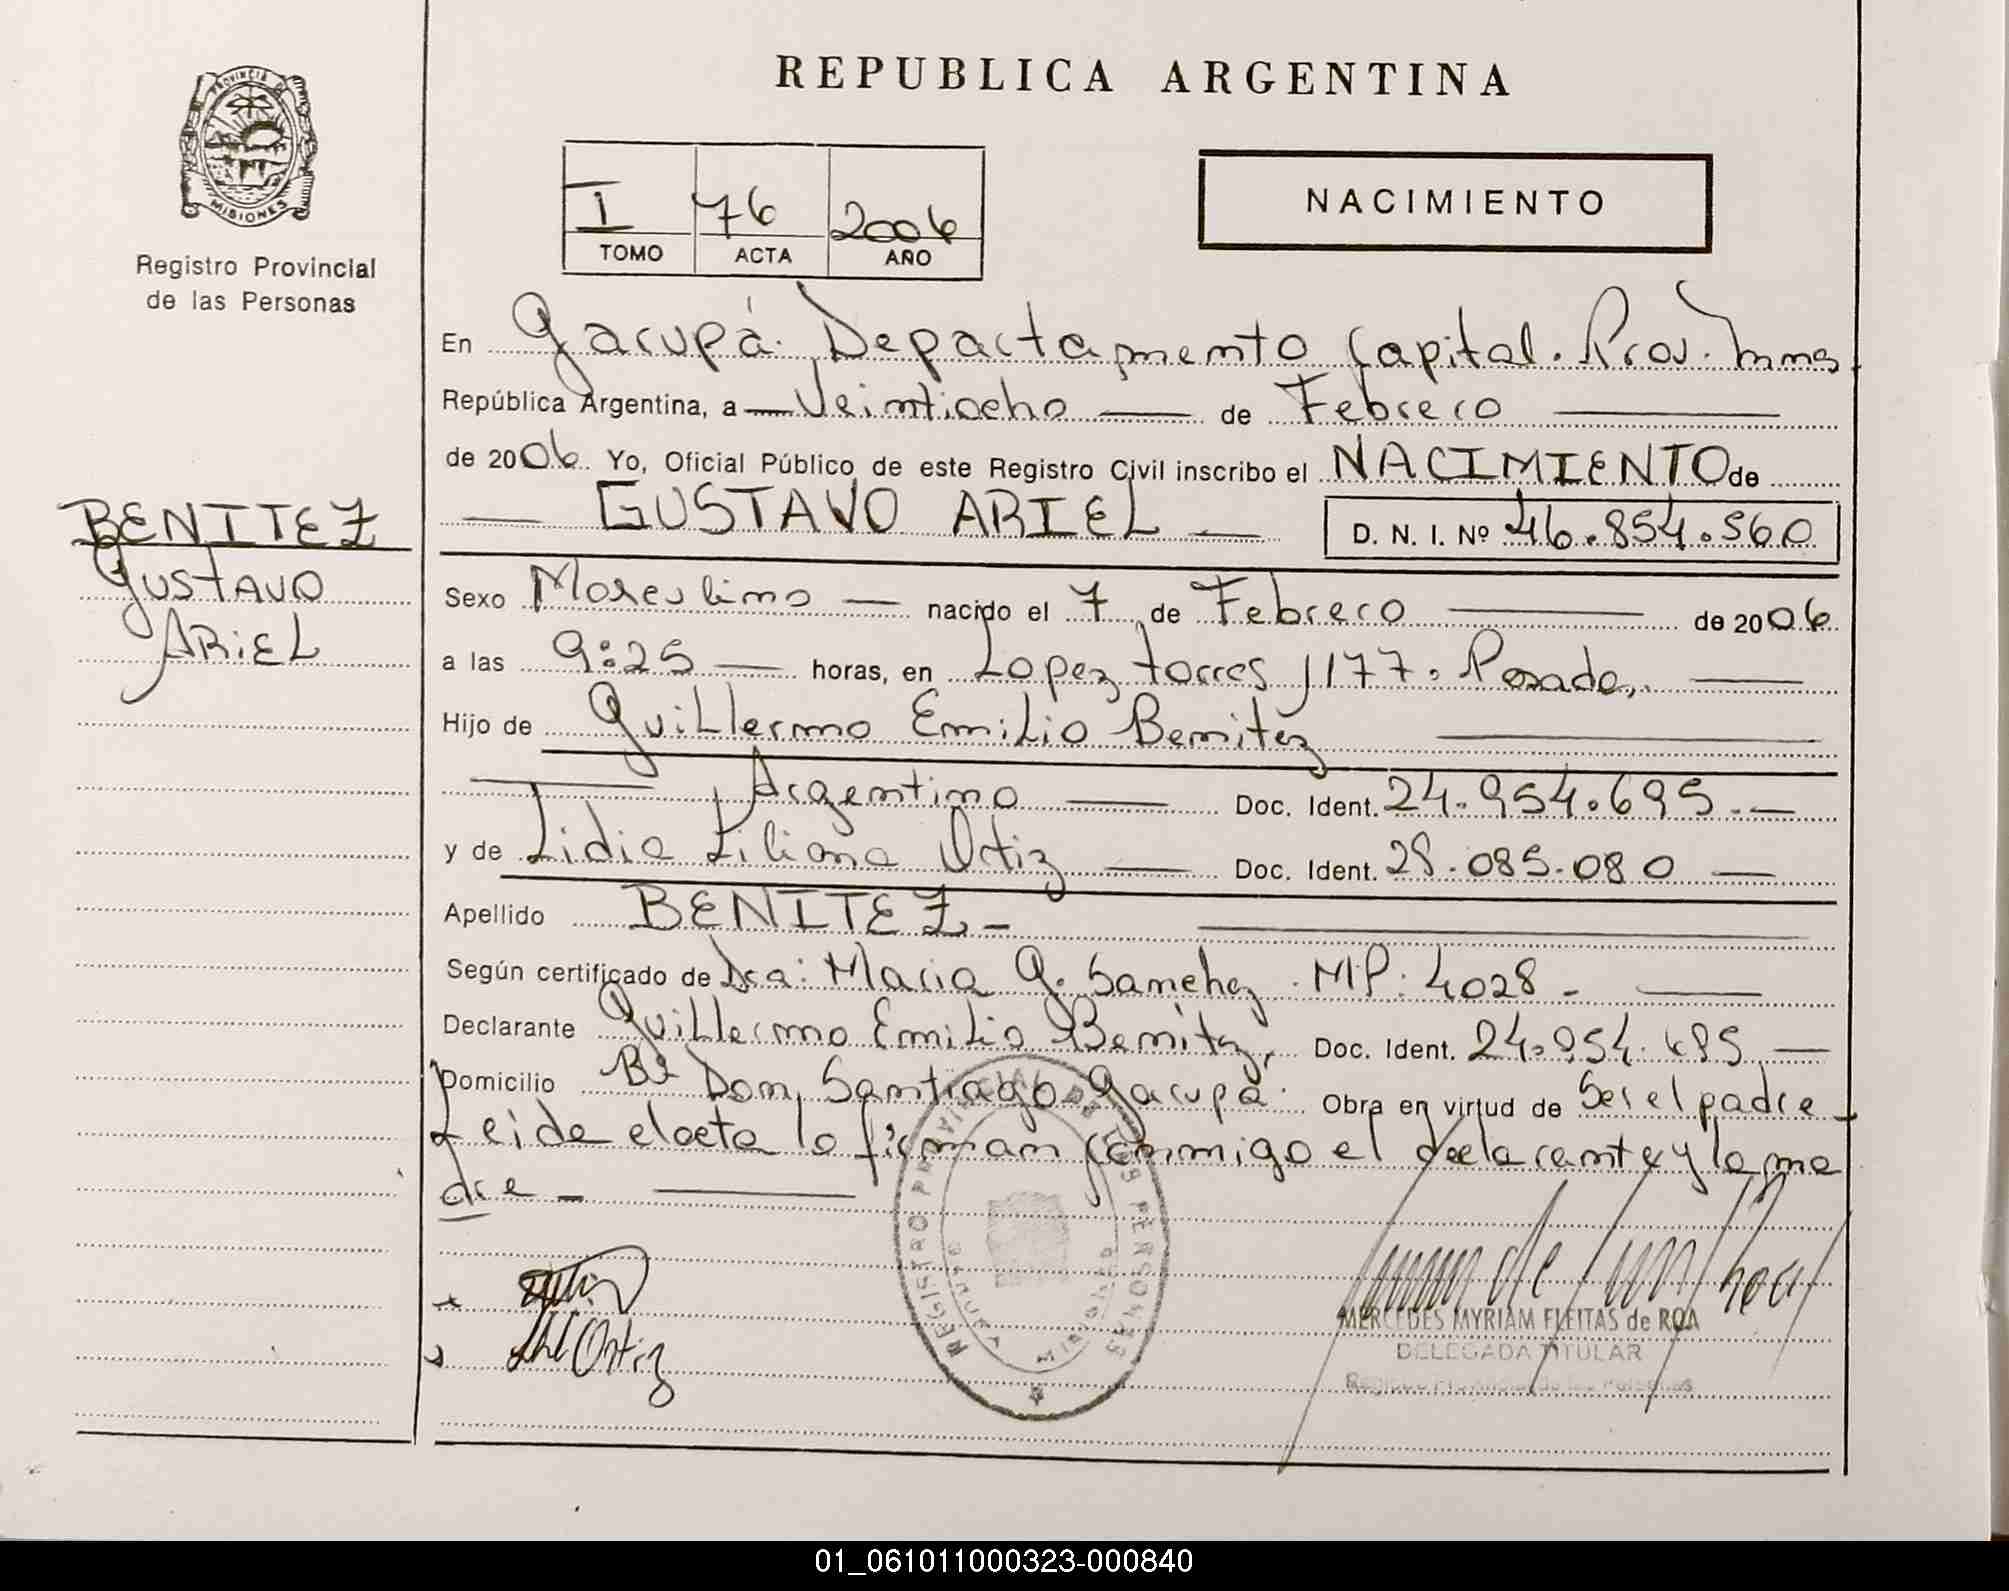 REPUBLICA ARGENTINA
PROVINCIA DE
MISIONES
Registro Provincial
de las Personas
I 76 2006
TOMO ACTA AÑO
NACIMIENTO
En Garupá. Departamento Capital. Prov. Mnes.
República Argentina, a Veintiocho de Febrero
de 2006. Yo, Oficial Público de este Registro Civil inscribo el NACIMIENTO de
GUSTAVO ARIEL D. N. I. Nº 46.854.560
BENITEZ
GUSTAVO
ARIEL
Sexo Masculino nacido el 7 de Febrero de 2006
a las 9:25 horas, en Lopez torres 1177. Posadas,
Hijo de Guillermo Emilio Benitez
Argentino Doc. Ident. 24.954.695.-
y de Lidia Liliana Ortiz Doc. Ident. 28.085.080
Apellido BENITEZ-
Según certificado de Dra: Maria G. Sanchez. MP: 4028-
Declarante Guillermo Emilio Benitez, Doc. Ident. 24.954.695
Domicilio Bº Don Santiago Garupá. Obra en virtud de Ser el padre
Leida el acta la firman conmigo el declarante y la ma
dre-
REGISTRO PROVINCIAL DE LAS PERSONAS
MISIONES
Ortiz
MERCEDES MYRIAM FLEITAS de ROA
DELEGADA TITULAR
Registro Provincial de las Personas
01_061011000323-000840